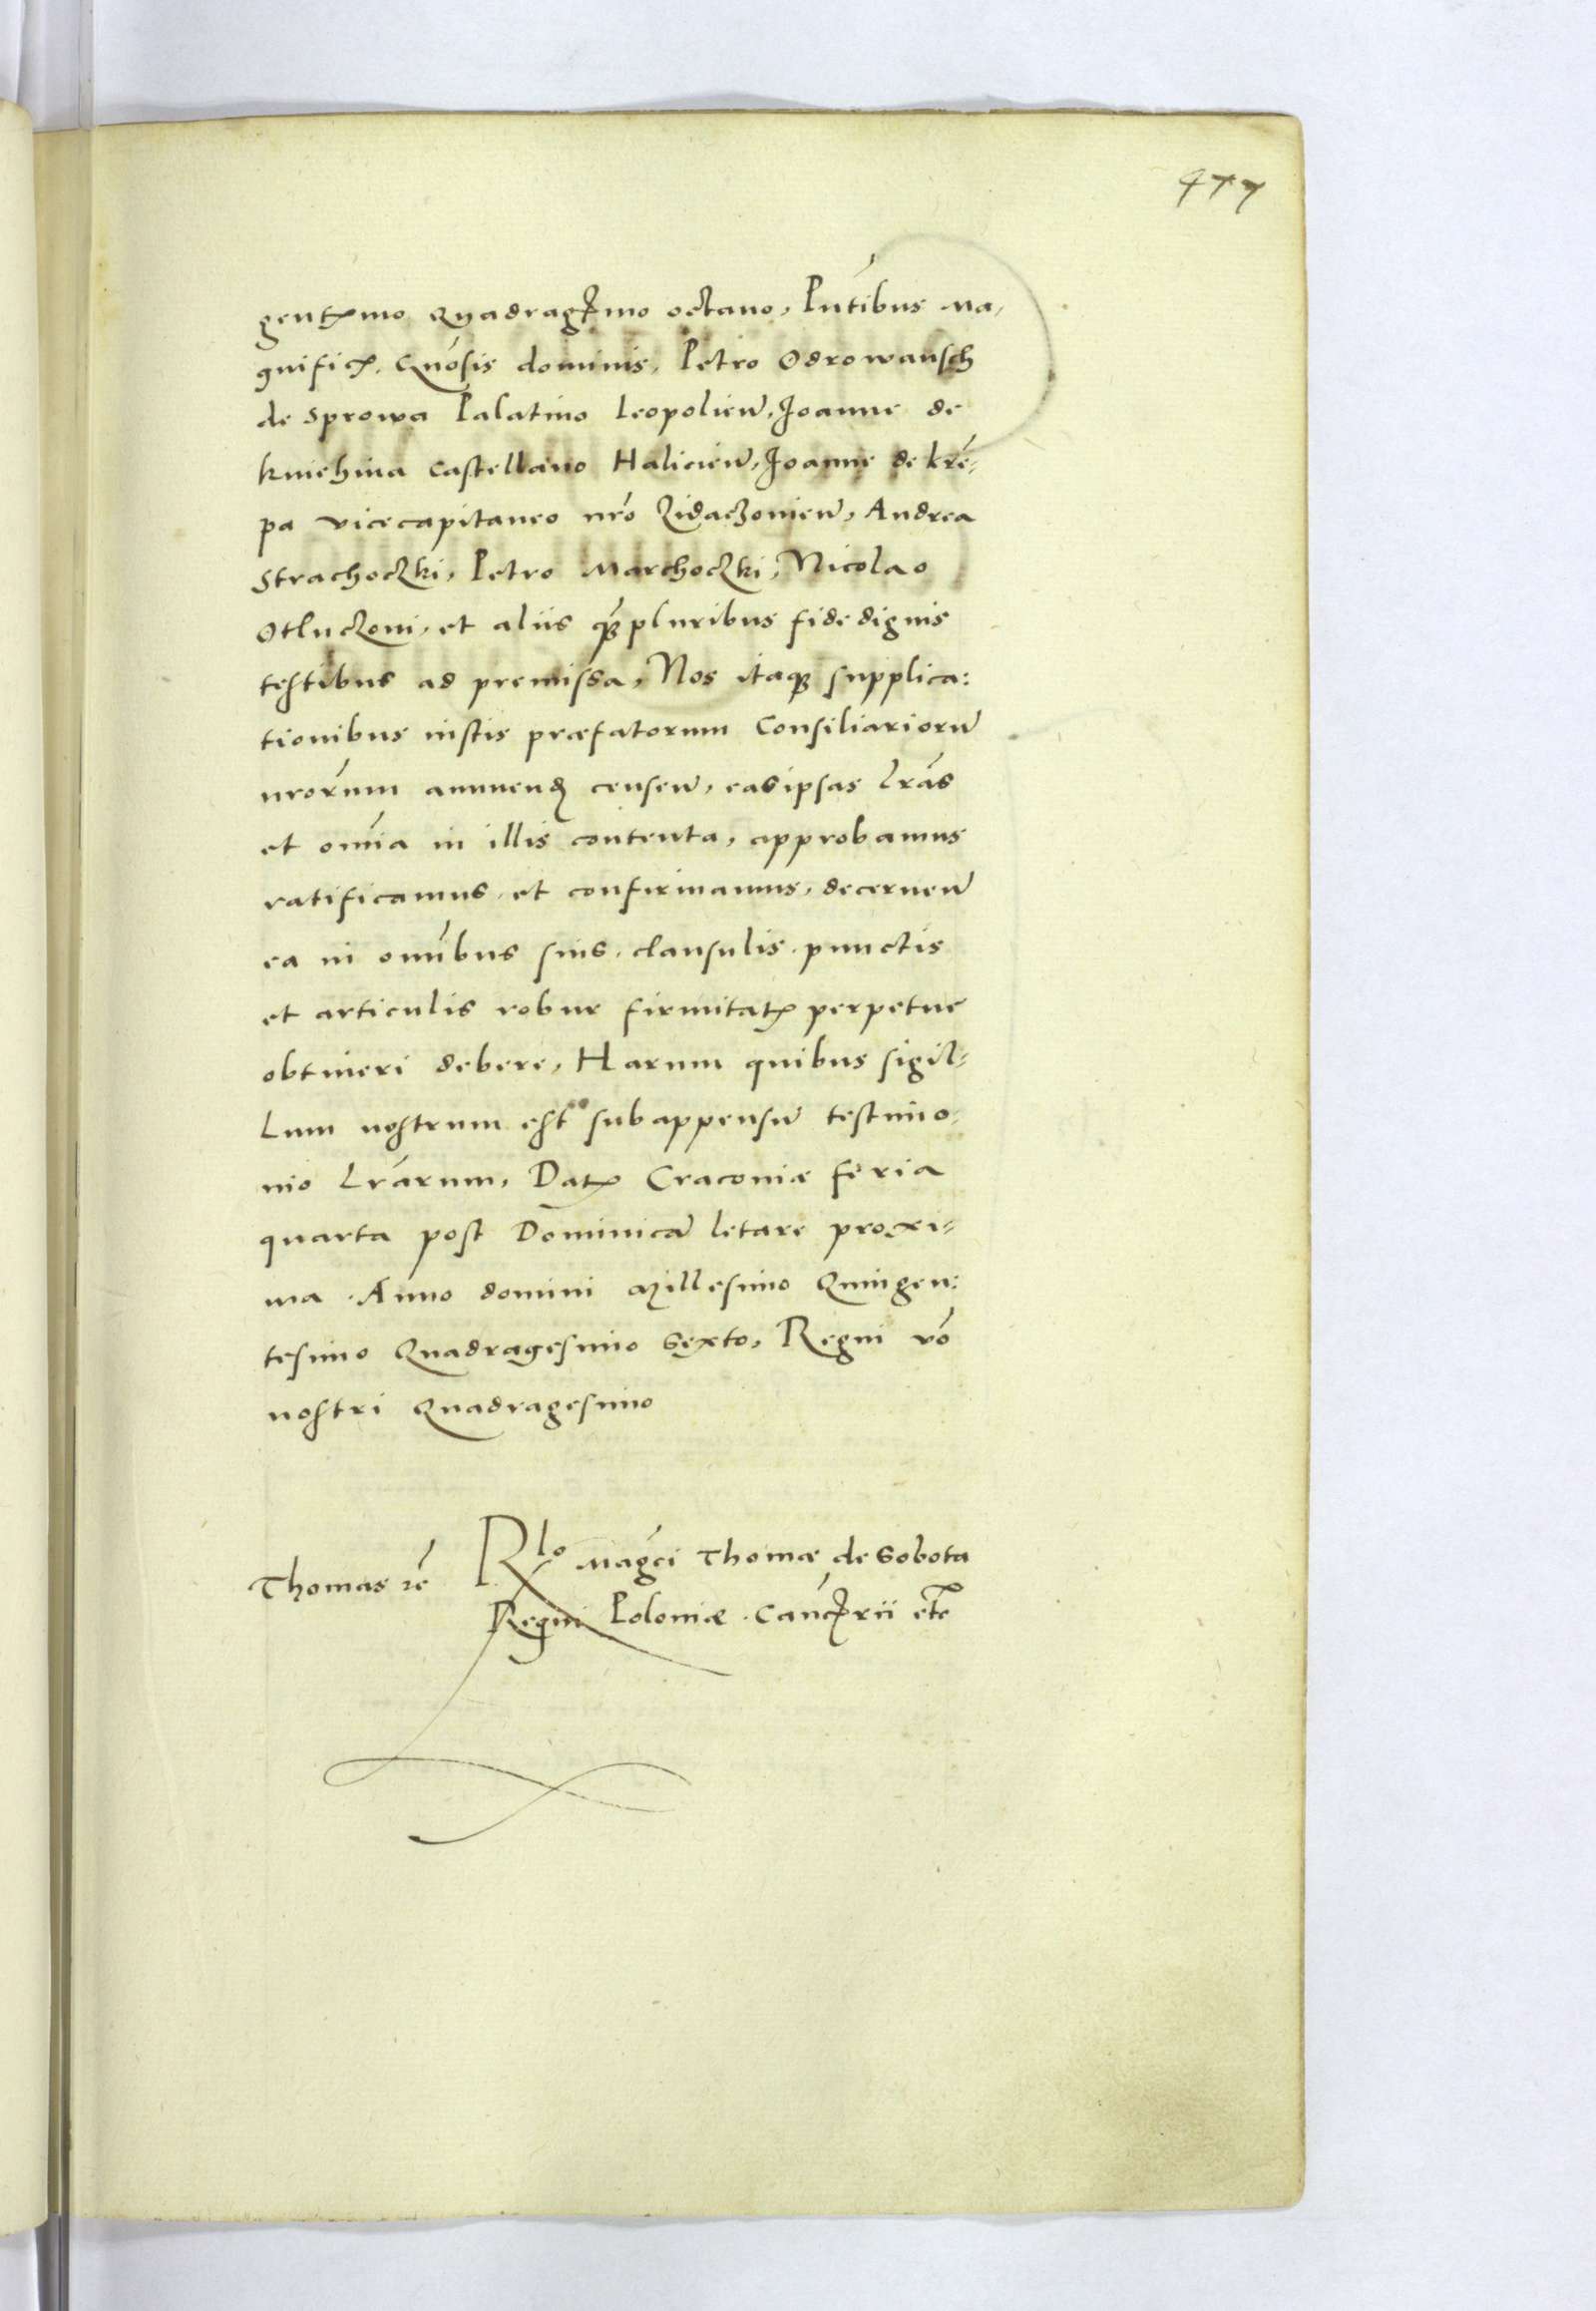 477
gentmo Quadragmo octavo, Pntibus Ma,
gnificis, Gnosis dominis, Petro Odrowansch
de Sprowa Palatino Leopolien, Joanne de
Kniehina Castellano Halicien, Joanne de kre¬
pa vicecapitaneo nro Zidaczonien, Andrea
Strachoczki, Petro Marchoczki, Nicolao
Otluczoni, et aliis qpluribus fidedignis
testibus ad premissa, Nos itaq supplica:
tionibus iustis præfatorum Consiliarioru
nrorum annuend censen, eas ipsas lras
et omia in illis contenta, approbamus
ratificamus, et confirmamus, decernen
ea in omibus suis, clausulis, punctis
et articulis robur firmitatis perpetue
obtineri debere, Harum quibus sigil¬
lum nostrum est subappensu testimo,
nio lrarum, Dat Cracoviæ feria
quarta post Dominica letare proxi¬
ma. Anno domini Millesimo Quingen:
tesimo Quadragesimo Sexto, Regni vo
nostri Quadragesimo
Thomas
Rlo Magci Thomæ de Sobota
Regni Poloniæ, Cancrii etc